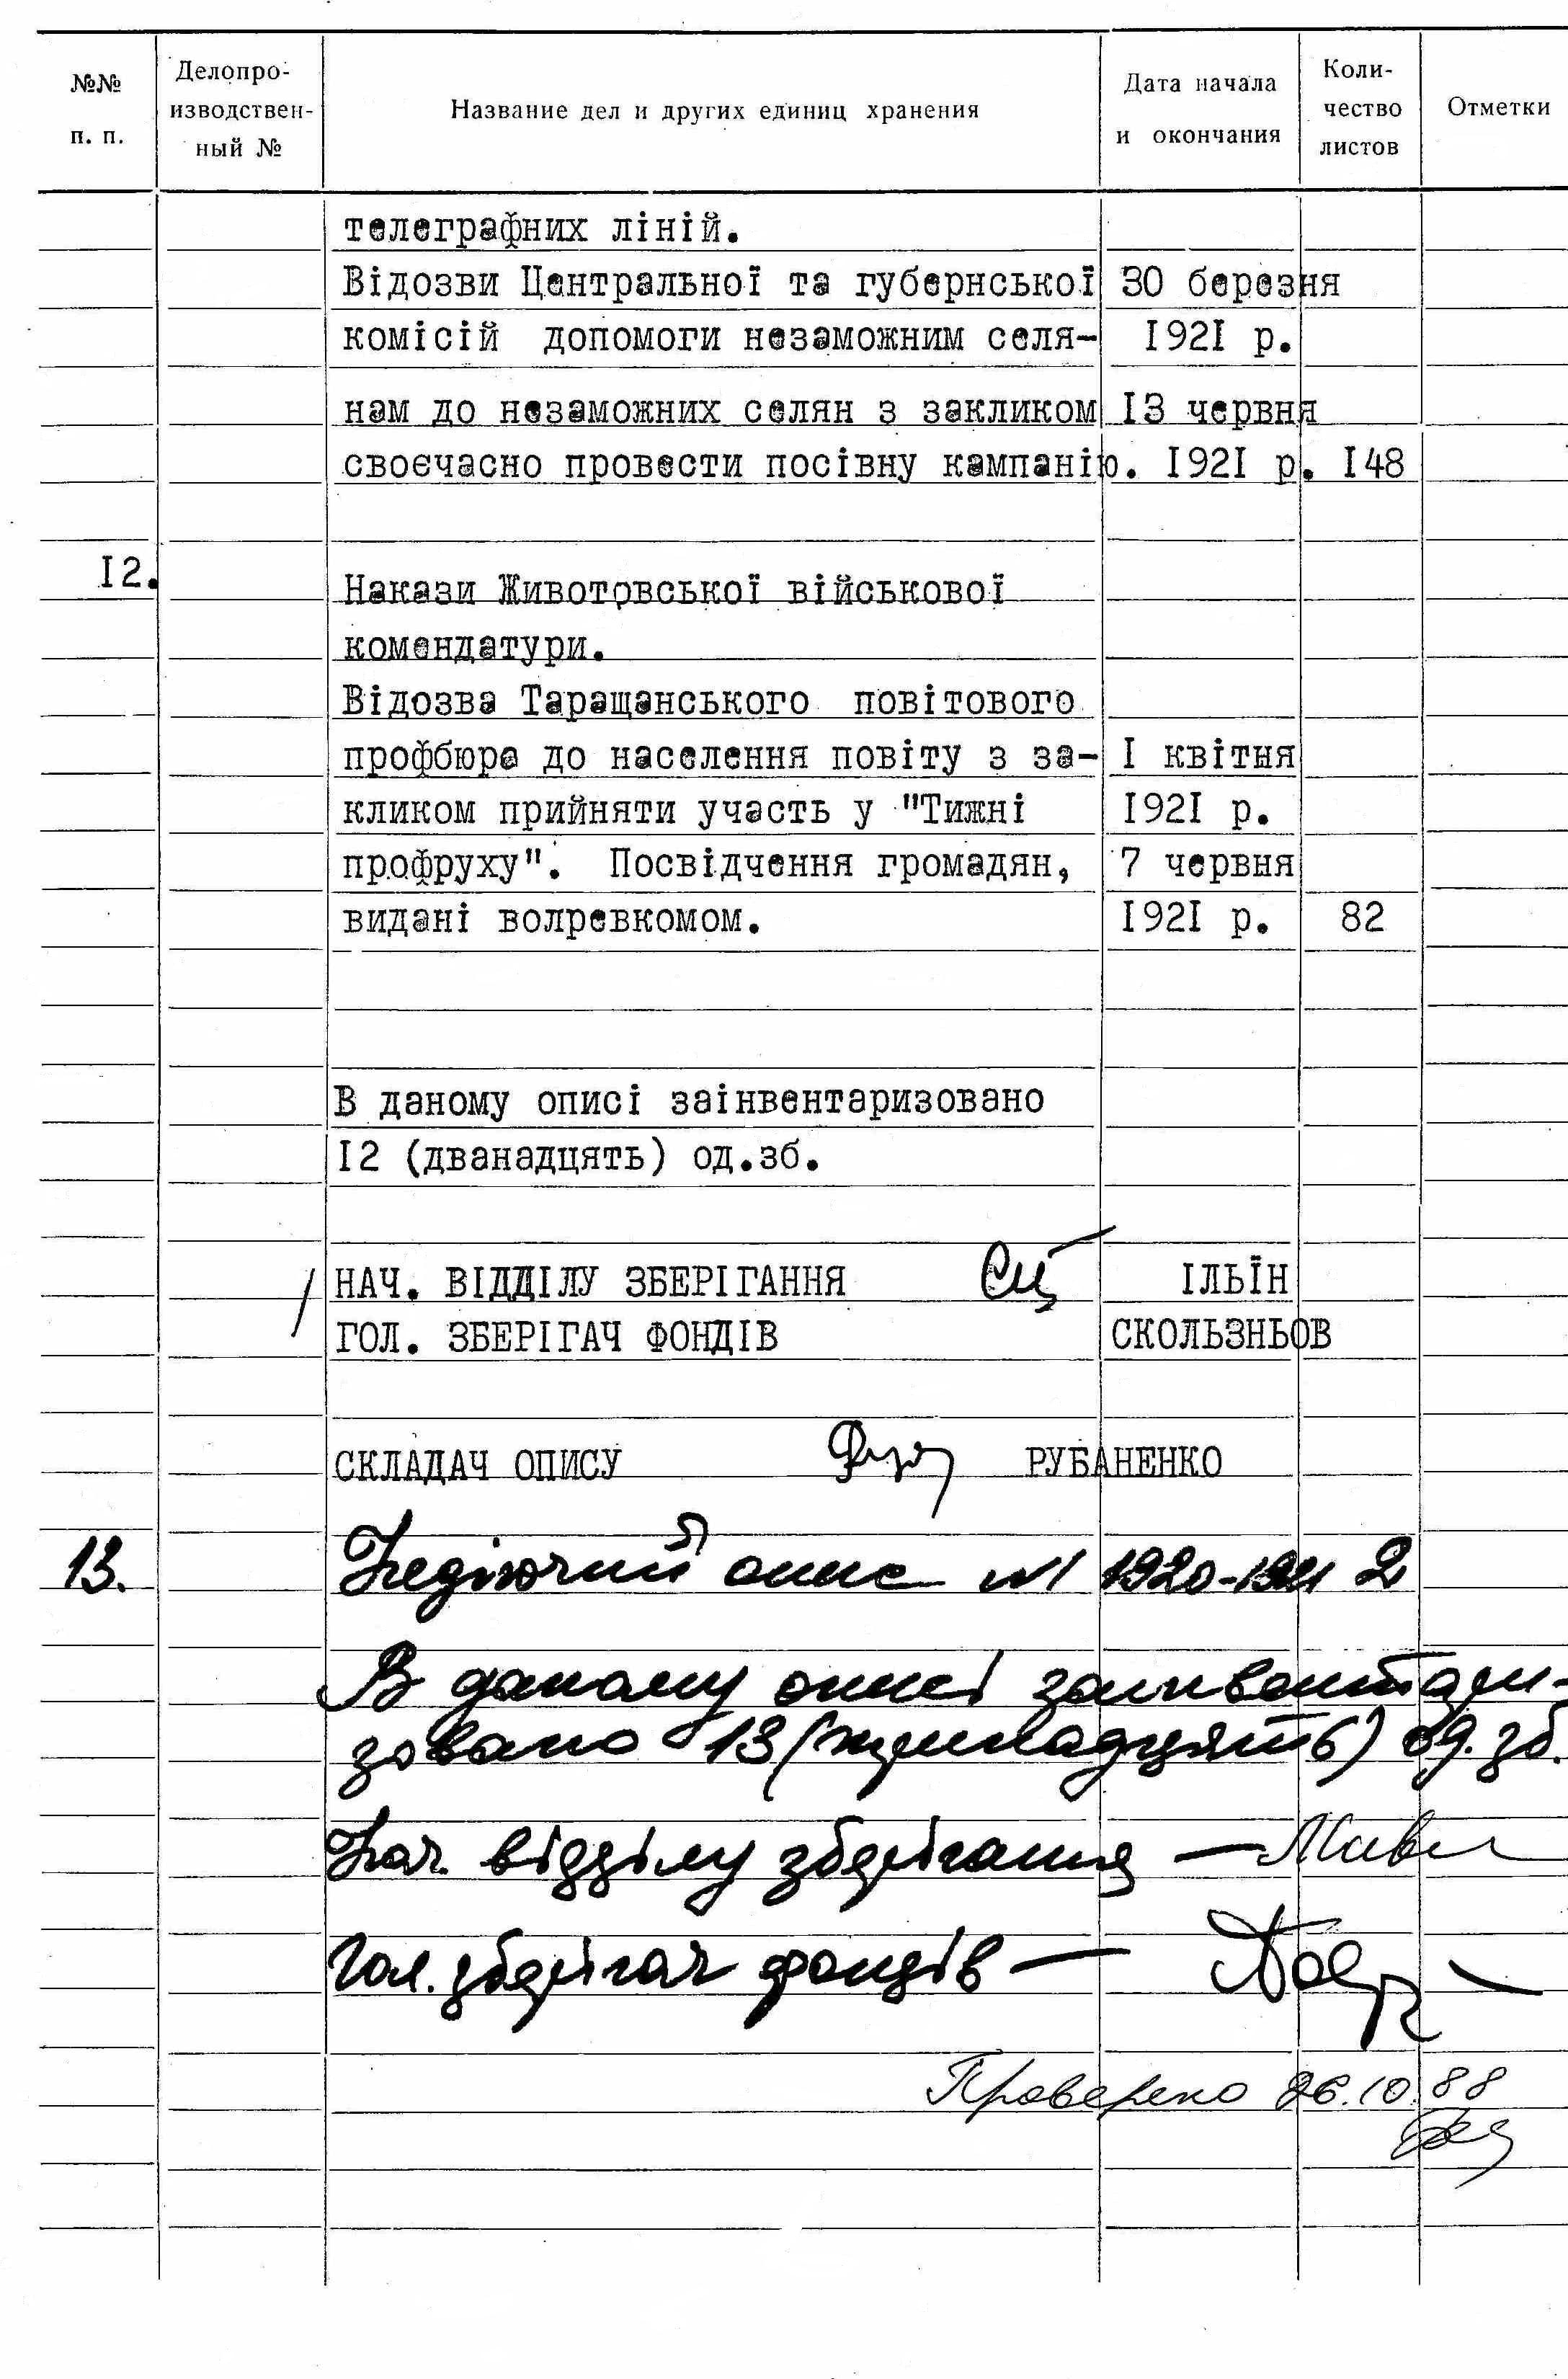 №№ п. п. Делопро-изводствен-ный № Название дел и других единиц хранения Дата начала и окончания Коли-чество листов Отметки
телеграфних ліній.
Відозви Центральної та губернської 30 березня
комісій допомоги незаможним селя- I92I р.
нам до незаможних селян з закликом I3 червня
своєчасно провести посівну кампанію. I92I р. I48
I2.
Накази Животовської військової
комендатури.
Відозва Таращанського повітового
профбюра до населення повіту з за- I квітня
кликом прийняти участь у "Тижні I92I р.
профруху". Посвідчення громадян, 7 червня
видані волревкомом. I92I р. 82
В даному описі заінвентаризовано
I2 (дванадцять) од.зб.
НАЧ. ВІДДІЛУ ЗБЕРІГАННЯ ІЛЬЇН
ГОЛ. ЗБЕРІГАЧ ФОНДІВ СКОЛЬЗНЬОВ
СКЛАДАЧ ОПИСУ РУБАНЕНКО
13. Недіючий опис №1 1920-1921 2
В даному описі заінвентари-
зовано 13 (тринадцять) од. зб.
Нач. відділу зберігання —
Гол. зберігач фондів —
Проверено 26.10.88